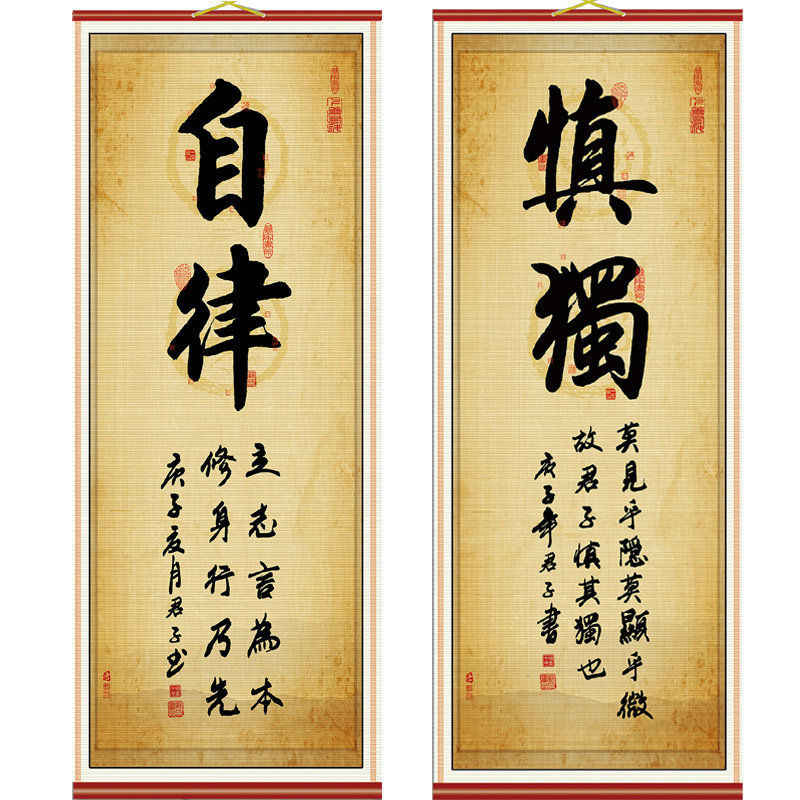 自律
立志言為本
修身行乃先
庚子夏月君子书
慎獨
莫見乎隱莫顯乎微
故君子慎其獨也
庚子年君子書